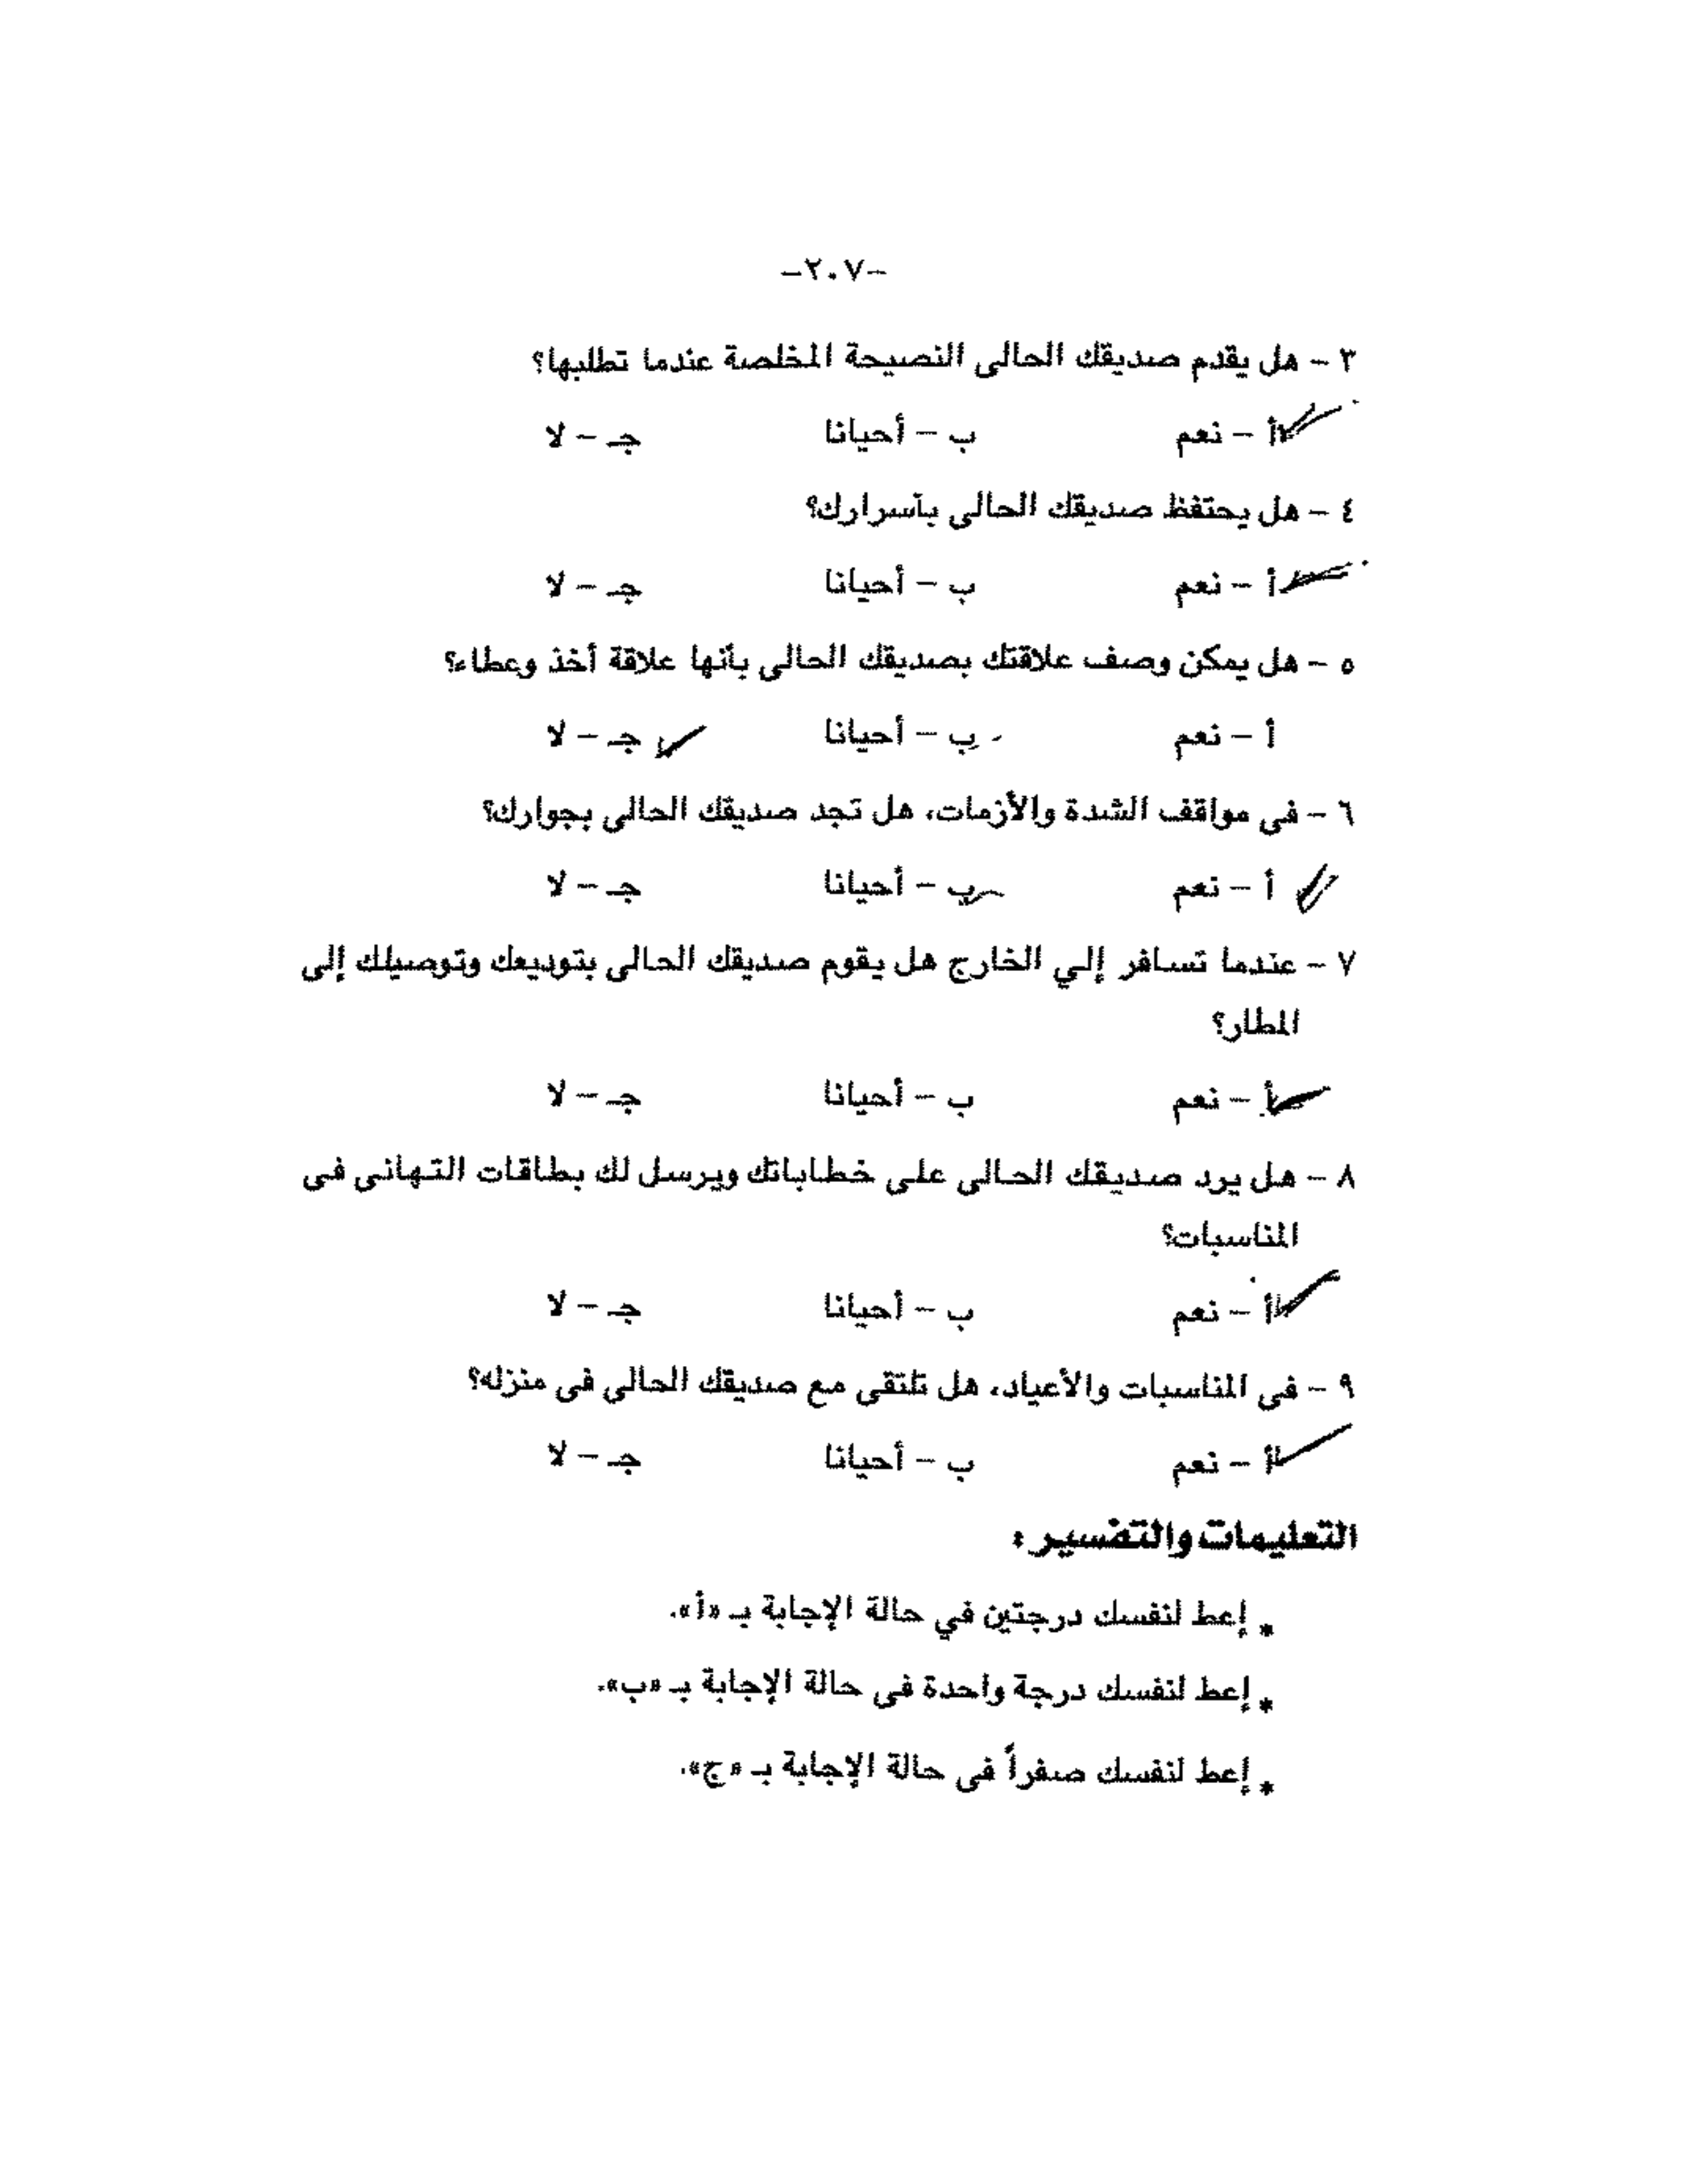 -٢٠٧-
٣ - هل يقدم صديقك الحالى النصيحة المخلصة عندما تطلبها؟
أ - نعم ب - أحيانا جـ - لا
٤ - هل يحتفظ صديقك الحالى بأسرارك؟
أ - نعم ب - أحيانا جـ - لا
٥ - هل يمكن وصف علاقتك بصديقك الحالى بأنها علاقة أخذ وعطاء؟
أ - نعم ب - أحيانا جـ - لا
٦ - فى مواقف الشدة والأزمات، هل تجد صديقك الحالى بجوارك؟
أ - نعم ب - أحيانا جـ - لا
٧ - عندما تسافر إلي الخارج هل يقوم صديقك الحالى بتوديعك وتوصيلك إلى
المطار؟
أ - نعم ب - أحيانا جـ - لا
٨ - هل يرد صديقك الحالى على خطاباتك ويرسل لك بطاقات التهانى فى
المناسبات؟
أ - نعم ب - أحيانا جـ - لا
٩ - فى المناسبات والأعياد، هل تلتقى مع صديقك الحالى فى منزله؟
أ - نعم ب - أحيانا جـ - لا
التعليمات والتفسير :
* إعط لنفسك درجتين في حالة الإجابة بـ «أ».
* إعط لنفسك درجة واحدة فى حالة الإجابة بـ «ب».
* إعط لنفسك صفراً فى حالة الإجابة بـ «ج».